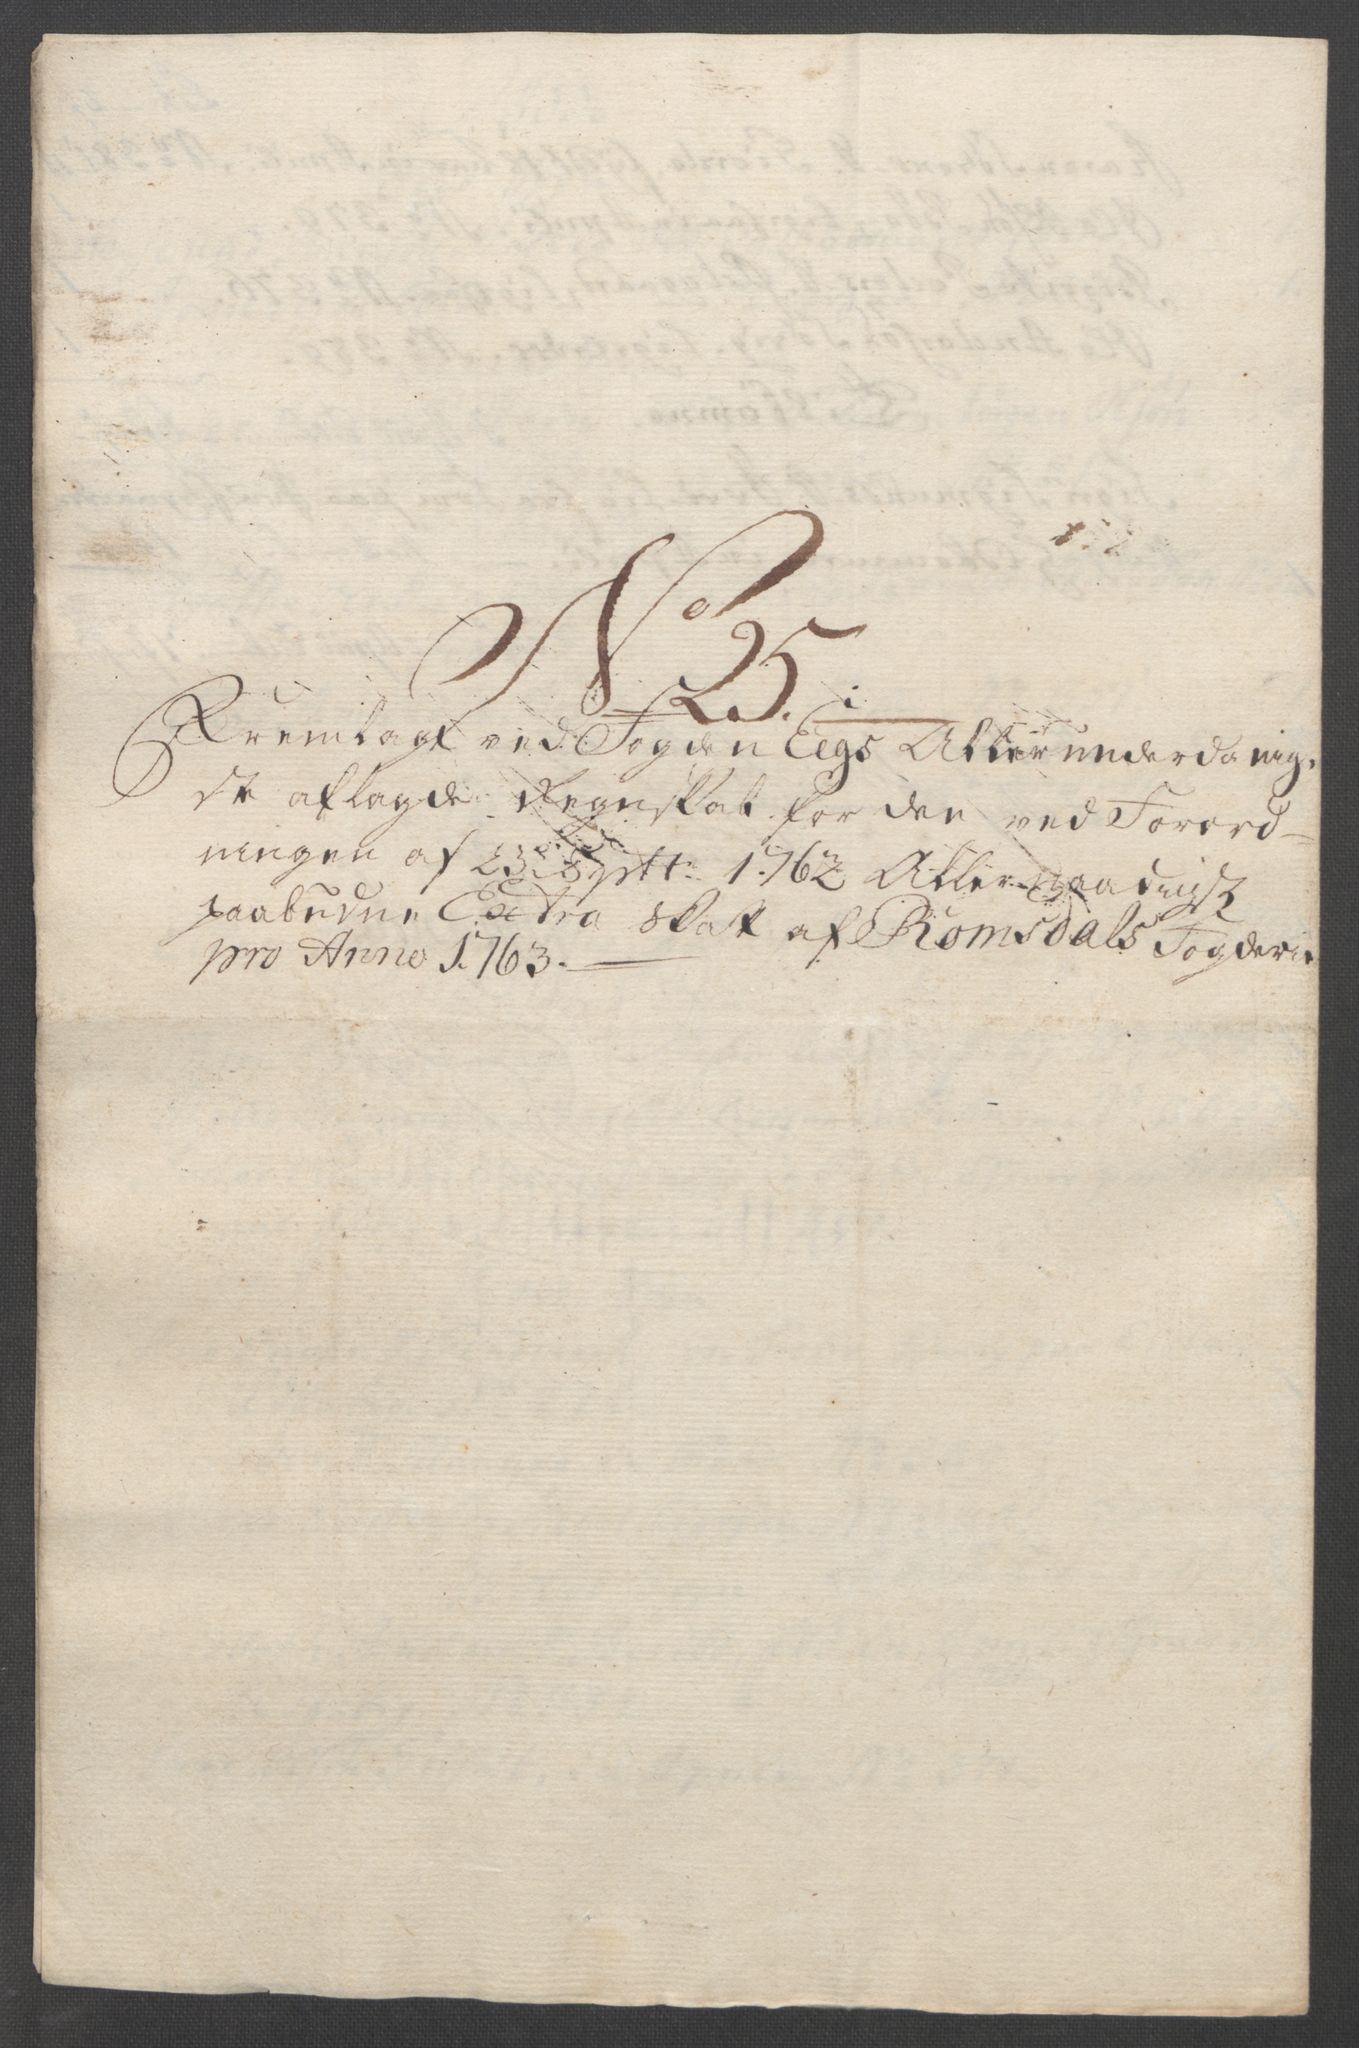 No 25.
Fremlagt ved Fogden Eegs Allerunderdanig-
ste aflagde Regnskab for den ved Forord-
ningen af 23 Septr: 1762 Allernaadigst
paabudne Extra Skatt af Romsdals Fogderie
pro Anno 1763.